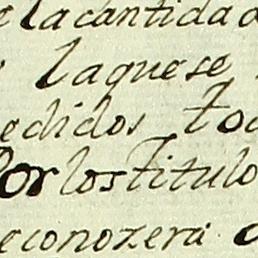 e la cantidad
laquese
edidos to
Por los Titulo
econozera